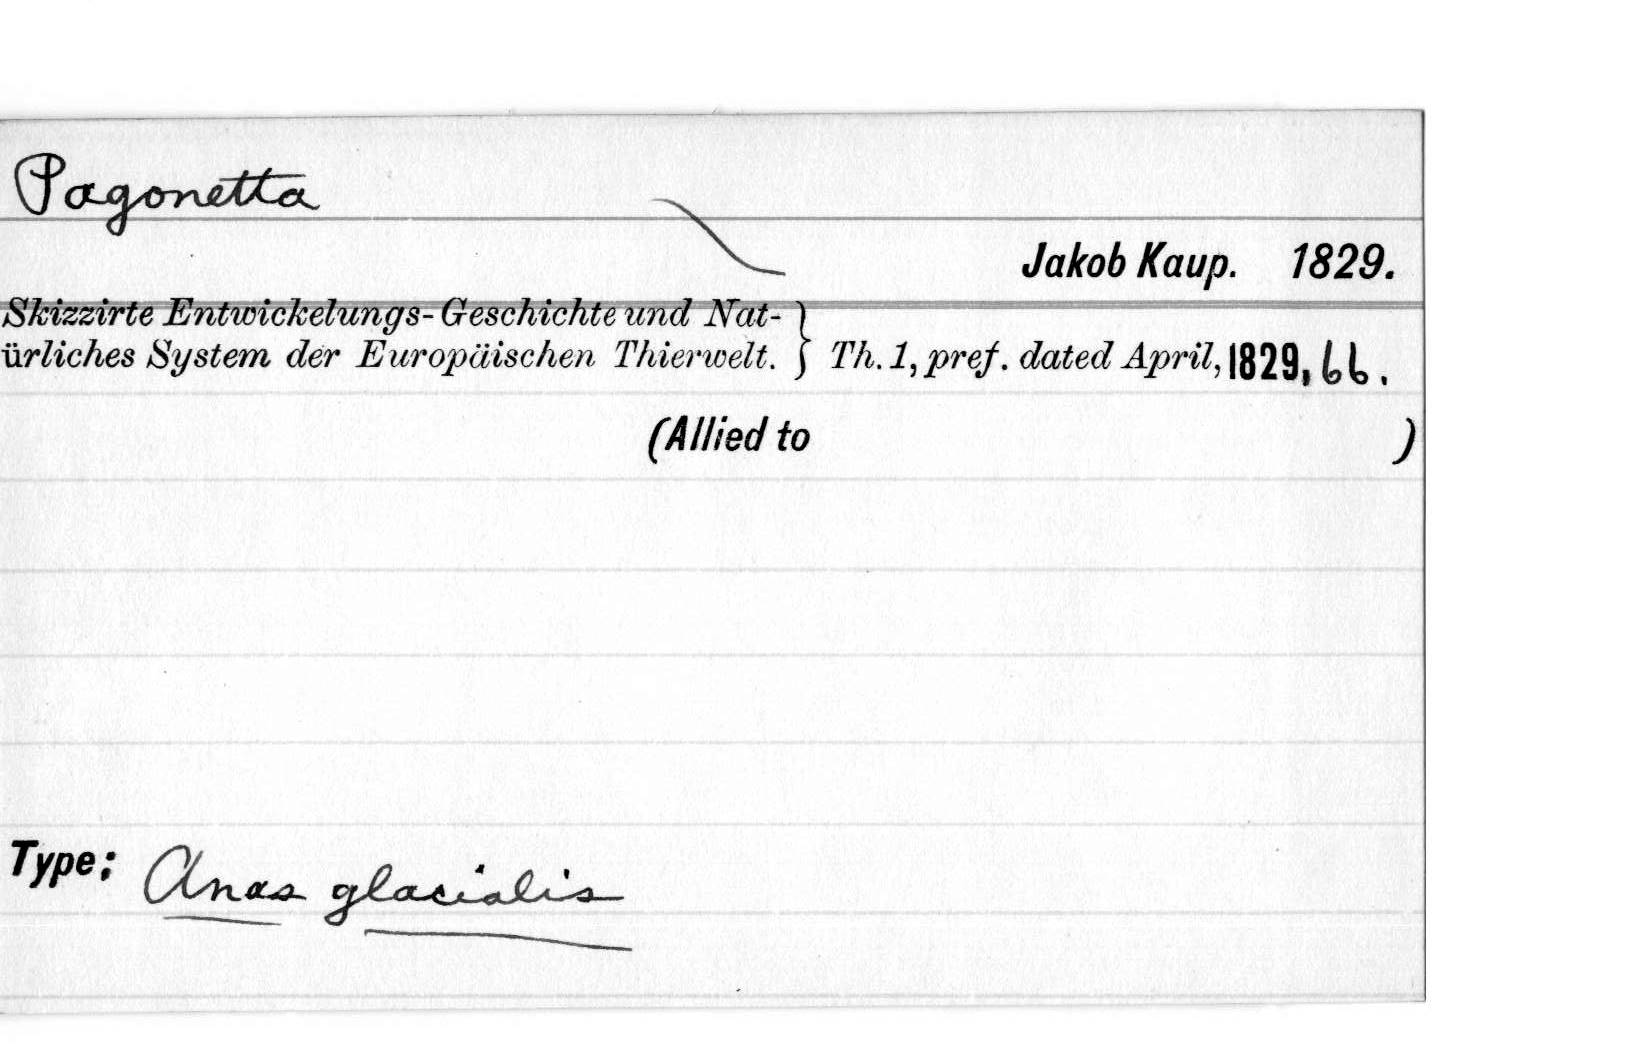 Pagonetta
Jakob Kaup. 1829.
Skizzirte Entwickelungs-Geschichte und Nat-
ürliches System der Europäischen Thierwelt. } Th. 1, pref. dated April, 1829, 66.
(Allied to )
Type; Anas glacialis